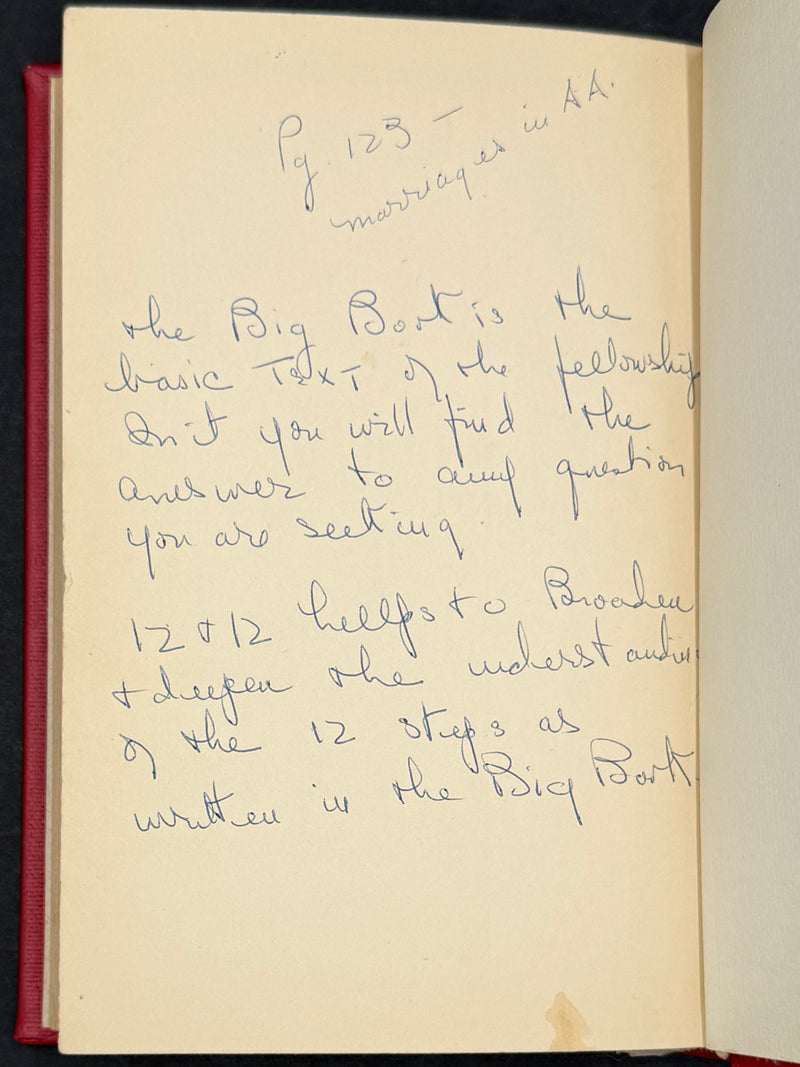 Pg. 123 -
marriages in AA.
the Big Book is the
basic Text of the fellowship
In it you will find the
answer to any question
you are seeking.
12 + 12 helps to Broaden
+ deepen the understanding
of the 12 steps as
written in the Big Book.